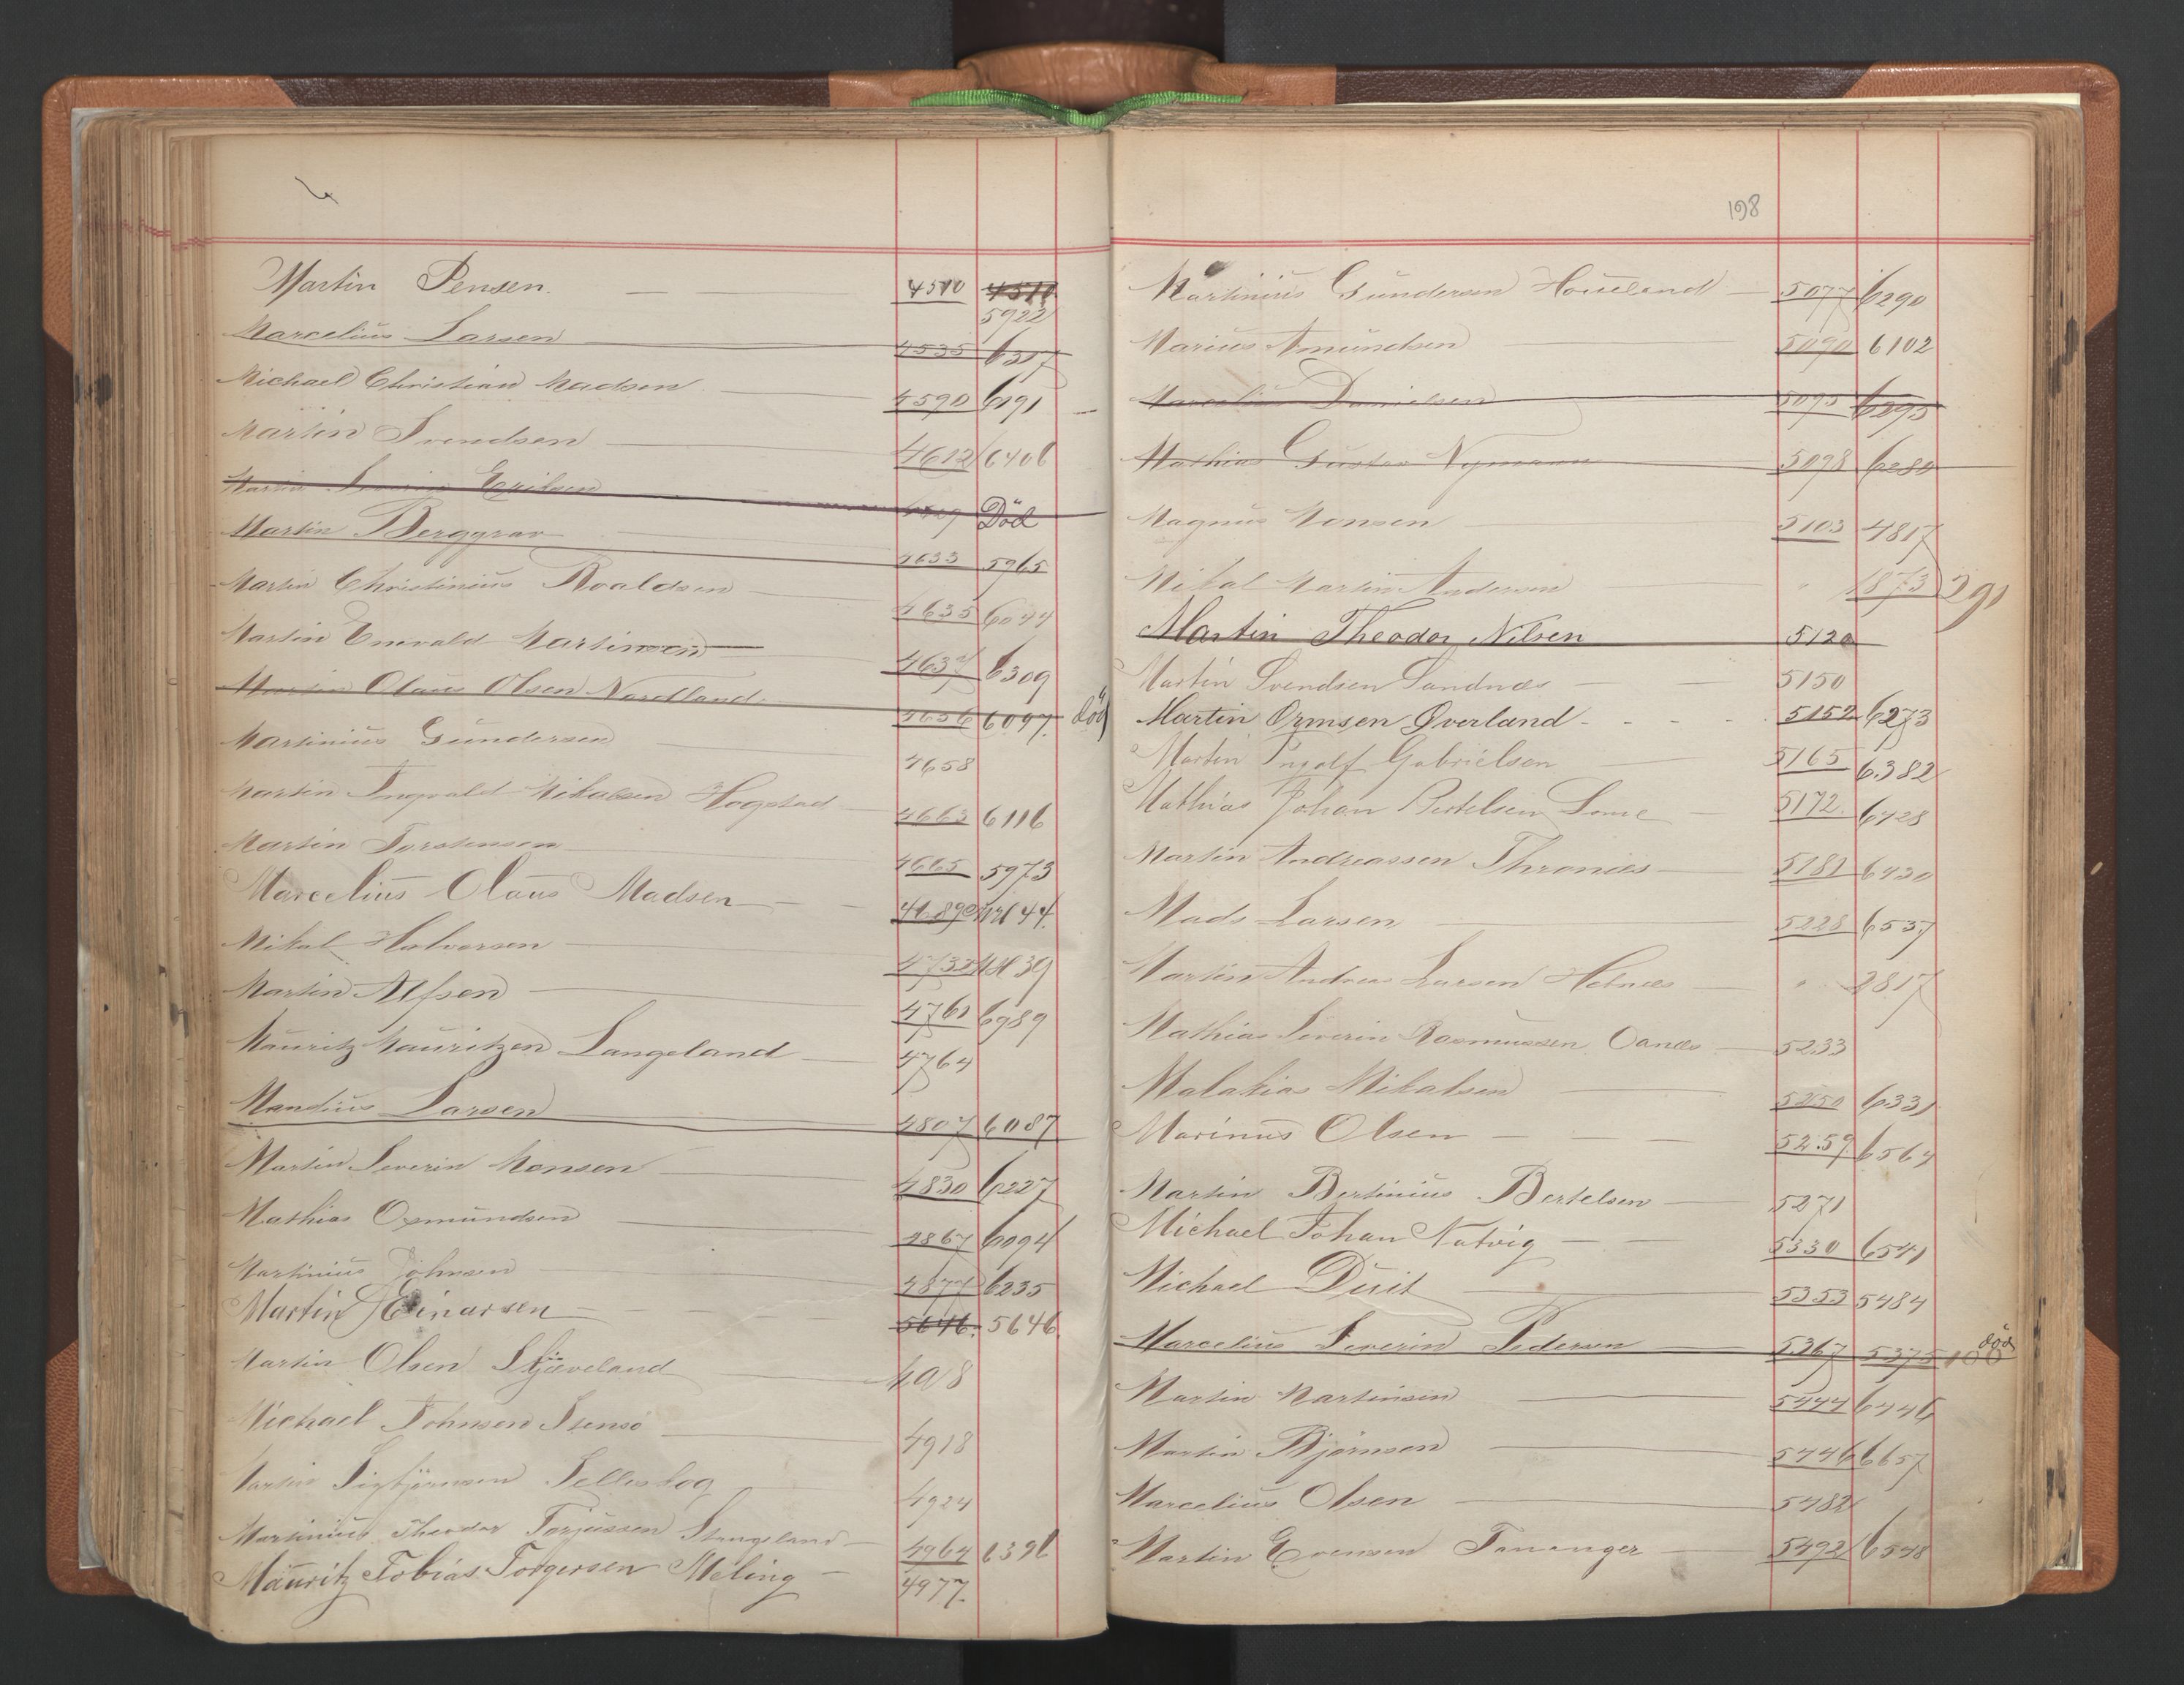 Martin Pensen. 4510 4510
5922
Marcelius Larsen 4535 6317
Michael Christian Madsen 4590 6191
Martin Svendsen 4612 6406
Martin Severin Eriksen Död
Martin Berggrav 4633 5965
Martin Christinius Roaldsen 4635 6044
Martin Enevald Martinsen 4637 6309
Martin Olaus Olsen Nordland 4656 6097. död
Martinius Gundersen 4658
Martin Ingvald Mikalsen Hogstad 4663 6116
Martin Torstensen 4665 5973
Marcelius Olaus Madsen 44.
Mikal Halvorsen 4732 39
Martin Alfsen 4761 6989
Mauritz Mauritzen Langeland 4764
Mandius Larsen 4807 6087
Martin Severin Monsen 4830 6227
Mathias Osmundsen 4867 6094
Martinius Johnsen 4877 6235
Martin Einarsen 5646. 5646
Martin Olsen Skjæveland
Michael Johnsen Stensö 4918
Martin Sigbjörnsen Selleskog 4924
Martinius Theodor Torjussen Stangeland 4964 6396
Mauritz Tobias Torgersen Meling 4977.
198
Martinius Gundersen Houeland 5077 6290
Marius Amundsen 5090 6102
Marcelius Danielsen 5095 6295
Mathias Gustav Nymann 5098 6280
Magnus Monsen 5103 4817
Mikal Martin Andersen " 1873 291
Martin Theodor Nilsen 5120
Martin Svendsen Sandnæs 5150
Martin Ormsen Øverland 5152 6273
Martin Ingolf Gabrielsen 5165 6382
Mathias Johan Bertelsen Lome 5172. 6428
Martin Andreassen Thronæs 5181 6430
Mads Larsen 5228 6537
Martin Andreas Larsen Helnæs " 2817
Mathias Severin Rasmussen Oanæs 5233
Malakias Mikalsen 5250 6331
Marinus Olsen 5259 6564
Martin Bertinius Bertelsen 5271
Michael Johan Natvig 5330 6541
Michael Duit 5353 5484
Marcelius Severin Pedersen 5367 5375 död
Martin Martinsen 5444 6446
Martin Bjørnsen 5446 6657
Marcelius Olsen 5482
Martin Evensen Tananger 5492 6548